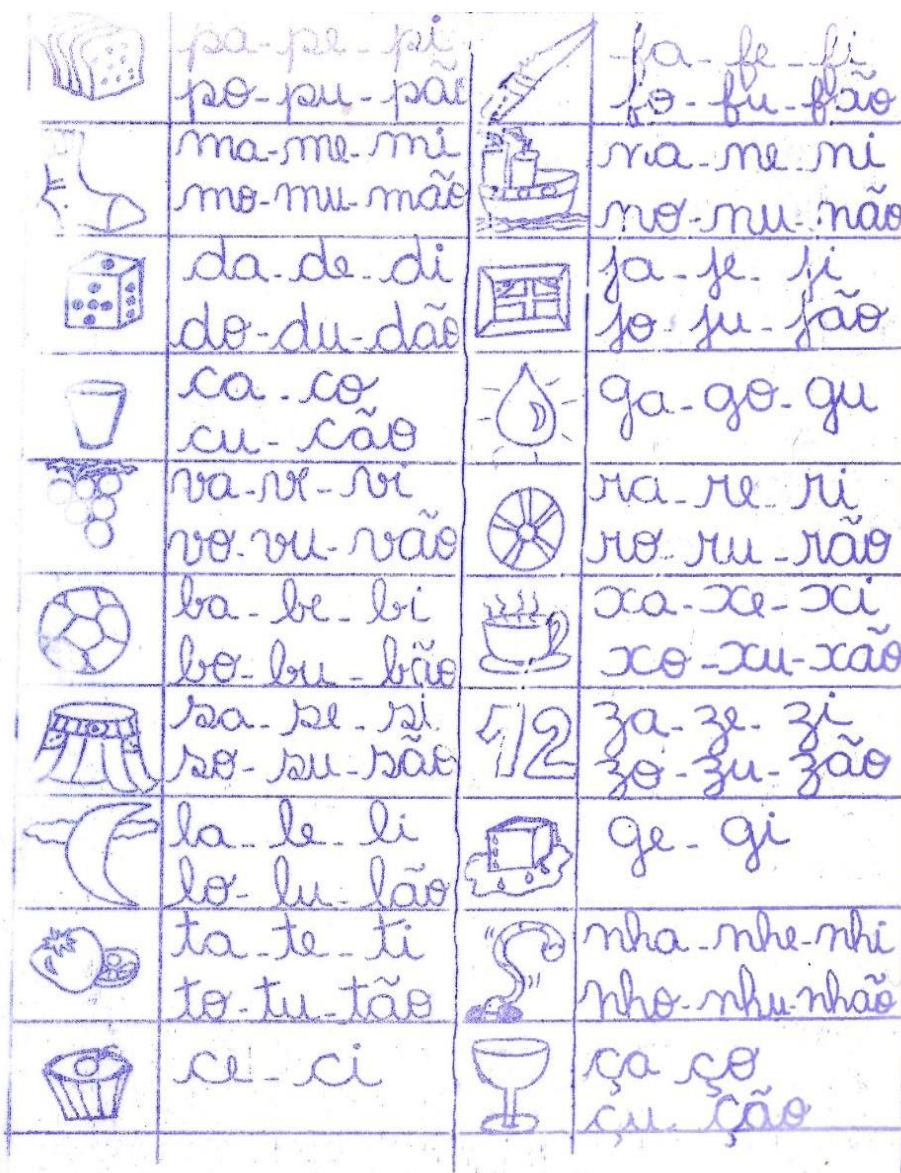 pa-pe-pi
po-pu-pão
ma-me-mi
mo-mu-mão
da-de-di
do-du-dão
ca-co
cu-cão
va-ve-vi
vo-vu-vão
ba-be-bi
bo-bu-bão
sa-se-si
so-su-são
la-le-li
lo-lu-lão
ta-te-ti
to-tu-tão
ce-ci
fa-fe-fi
fo-fu-fão
na-ne-ni
no-nu-não
ja-je-ji
jo-ju-jão
ga-go-gu
ra-re-ri
ro-ru-rão
xa-xe-xi
xo-xu-xão
12
za-ze-zi
zo-zu-zão
ge-gi
nha-nhe-nhi
nho-nhu-nhão
ça ço
çu-ção